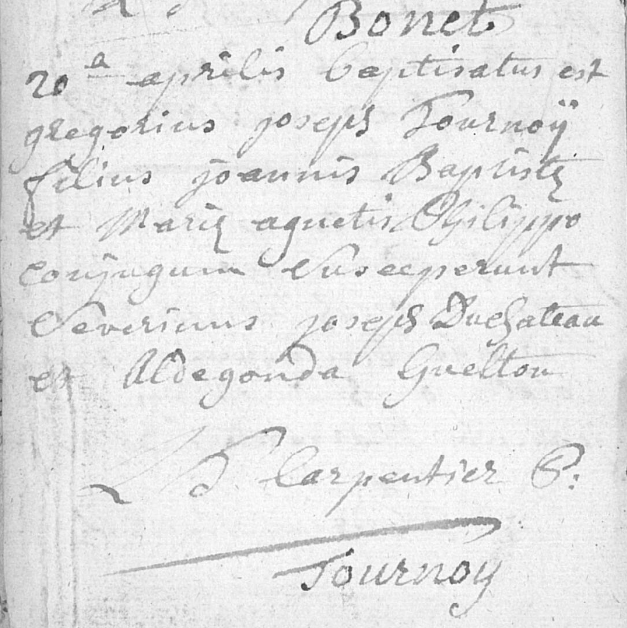 Bonet
20a aprilis baptisatus est
gregorius joseph Tournoÿ
filius joannis Baptistę
et Marię agnetis Philippo
conjugum Susceperunt
Severinus joseph Duchateau
et Aldegonda Guelton
Carpentier
Tournoy